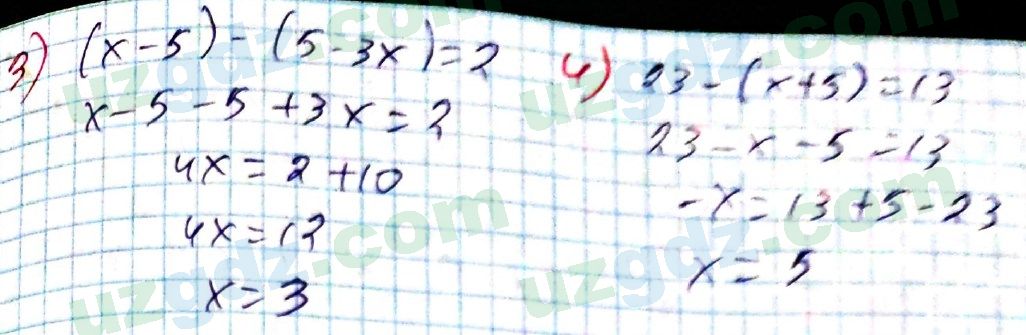 3) (x-5)-(5-3x)=2
x-5-5+3x=2
4x=2+10
4x=12
x=3
4) 23-(x+5)=13
23-x-5=13
-x=13+5-23
x=5
uzgdz.com
uzgdz.com
uzgdz.com
uzgdz.com